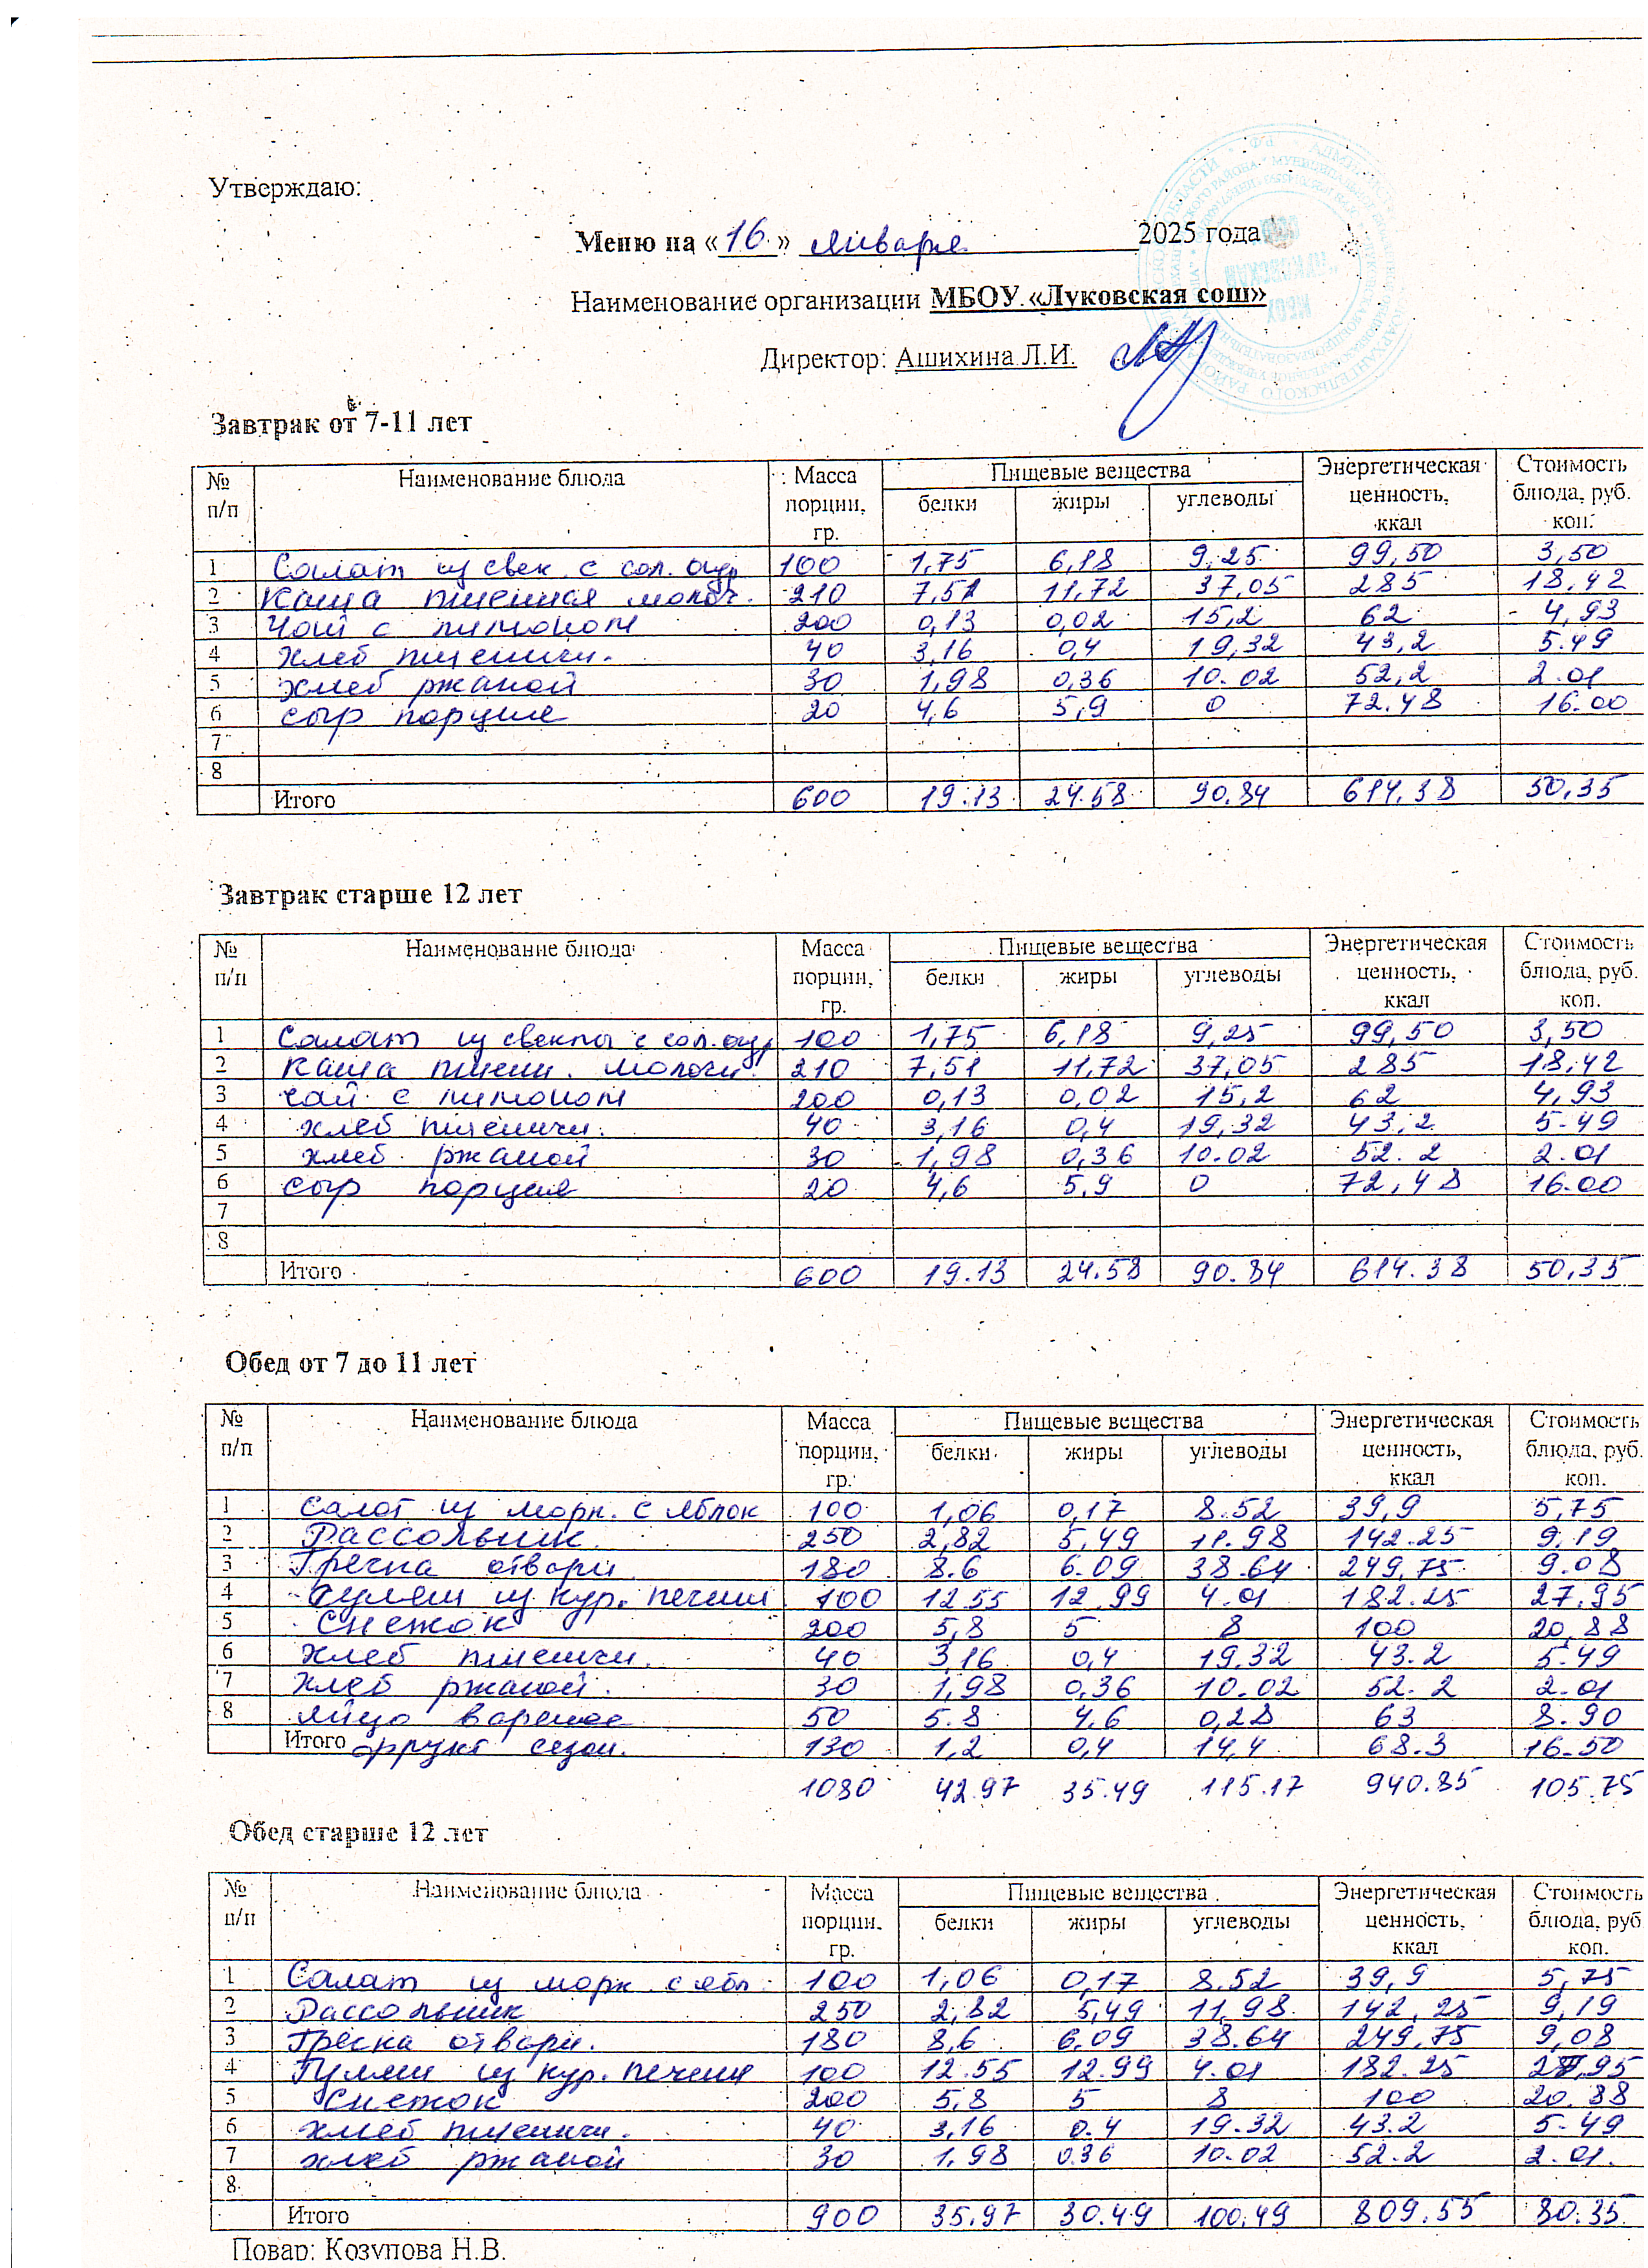 Утверждаю:
Меню на «16» января 2025 года
Наименование организации МБОУ «Луковская сош»
Директор: Ашихина Л.И.
Завтрак от 7-11 лет
№ п/п Наименование блюда Масса порции, гр. Пищевые вещества белки жиры углеводы Энергетическая ценность, ккал Стоимость блюда, руб. коп.
1 Салат из свек с сол. огур 100 1,75 6,18 9,25 99,50 3,50
2 Каша пшенная молоч. 210 7,51 11,72 37,05 285 18,42
3 Чай с лимоном 200 0,13 0,02 15,2 62 4,93
4 хлеб пшеничн. 40 3,16 0,4 19,32 43,2 5.49
5 хлеб ржаной 30 1,98 0,36 10.02 52,2 2.01
6 сыр порция 20 4,6 5,9 0 72.48 16.00
7
8
Итого 600 19.13 24.58 90.84 614.38 50,35
Завтрак старше 12 лет
№ п/п Наименование блюда Масса порции, гр. Пищевые вещества белки жиры углеводы Энергетическая ценность, ккал Стоимость блюда, руб. коп.
1 Салат из свеклы с сол. огур 100 1,75 6,18 9,25 99,50 3,50
2 Каша пшенн. молочн. 210 7,51 11,72 37,05 285 18,42
3 чай с лимоном 200 0,13 0,02 15,2 62 4,93
4 хлеб пшеничн. 40 3,16 0,4 19,32 43,2 5.49
5 хлеб ржаной 30 1,98 0,36 10.02 52.2 2.01
6 сыр порция 20 4,6 5,9 0 72,48 16.00
7
8
Итого 600 19.13 24.58 90.84 614.38 50,35
Обед от 7 до 11 лет
№ п/п Наименование блюда Масса порции, гр. Пищевые вещества белки жиры углеводы Энергетическая ценность, ккал Стоимость блюда, руб. коп.
1 салат из морк. с яблок 100 1,06 0,17 8.52 39,9 5,75
2 Рассольник 250 2,82 5,49 11.98 142.25 9,19
3 Гречка отварн 180 8.6 6.09 38.64 249,75 9.08
4 Гуляш из кур. печени 100 12.55 12.99 4.01 182.25 27.95
5 Снежок 200 5,8 5 8 100 20,88
6 хлеб пшеничн. 40 3,16 0,4 19,32 43.2 5.49
7 хлеб ржаной. 30 1,98 0,36 10.02 52.2 2.01
8 яйцо вареное 50 5.8 4,6 0,28 63 8.90
Итого фрукт сезон. 130 1,2 0,4 14,4 68.3 16.50
1080 42.97 35.49 115.17 940.85 105.75
Обед старше 12 лет
№ п/п Наименование блюда Масса порции, гр. Пищевые вещества белки жиры углеводы Энергетическая ценность, ккал Стоимость блюда, руб. коп.
1 Салат из морк с ябл 100 1,06 0,17 8.52 39,9 5,75
2 Рассольник 250 2,82 5,49 11,98 142,25 9,19
3 Гречка отварн. 180 8,6 6,09 38.64 249,75 9,08
4 Гуляш из кур. печени 100 12.55 12.99 4.01 182.25 27,95
5 Снежок 200 5,8 5 8 100 20.88
6 хлеб пшеничн. 40 3,16 0.4 19.32 43.2 5.49
7 хлеб ржаной 30 1,98 0.36 10.02 52.2 2.01.
8
Итого 900 35.97 30.49 100,49 809.55 80.35
Повар: Козупова Н.В.